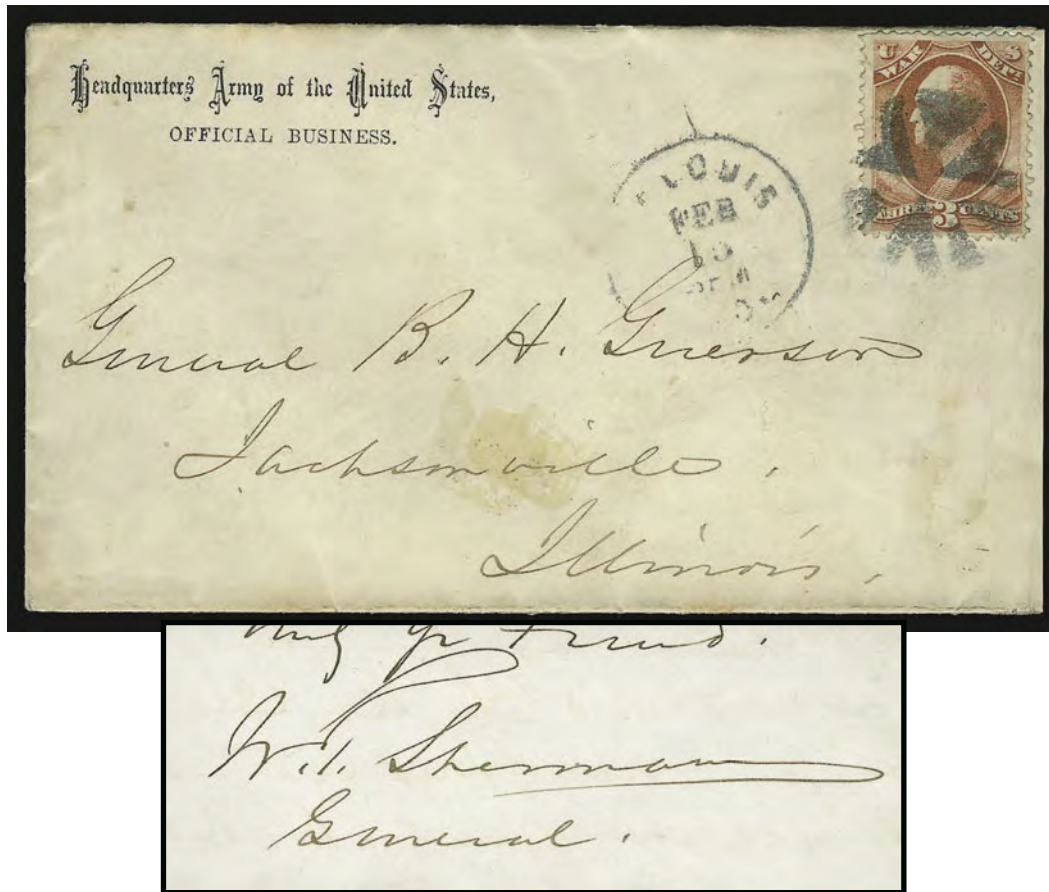 Headquarters Army of the United States,
OFFICIAL BUSINESS.
U S
WAR DEPT.
THREE 3 CENTS
LOUIS
FEB
General B. H. Grierson
Jacksonville,
Illinois,
Friend.
W. T. Sherman
General.